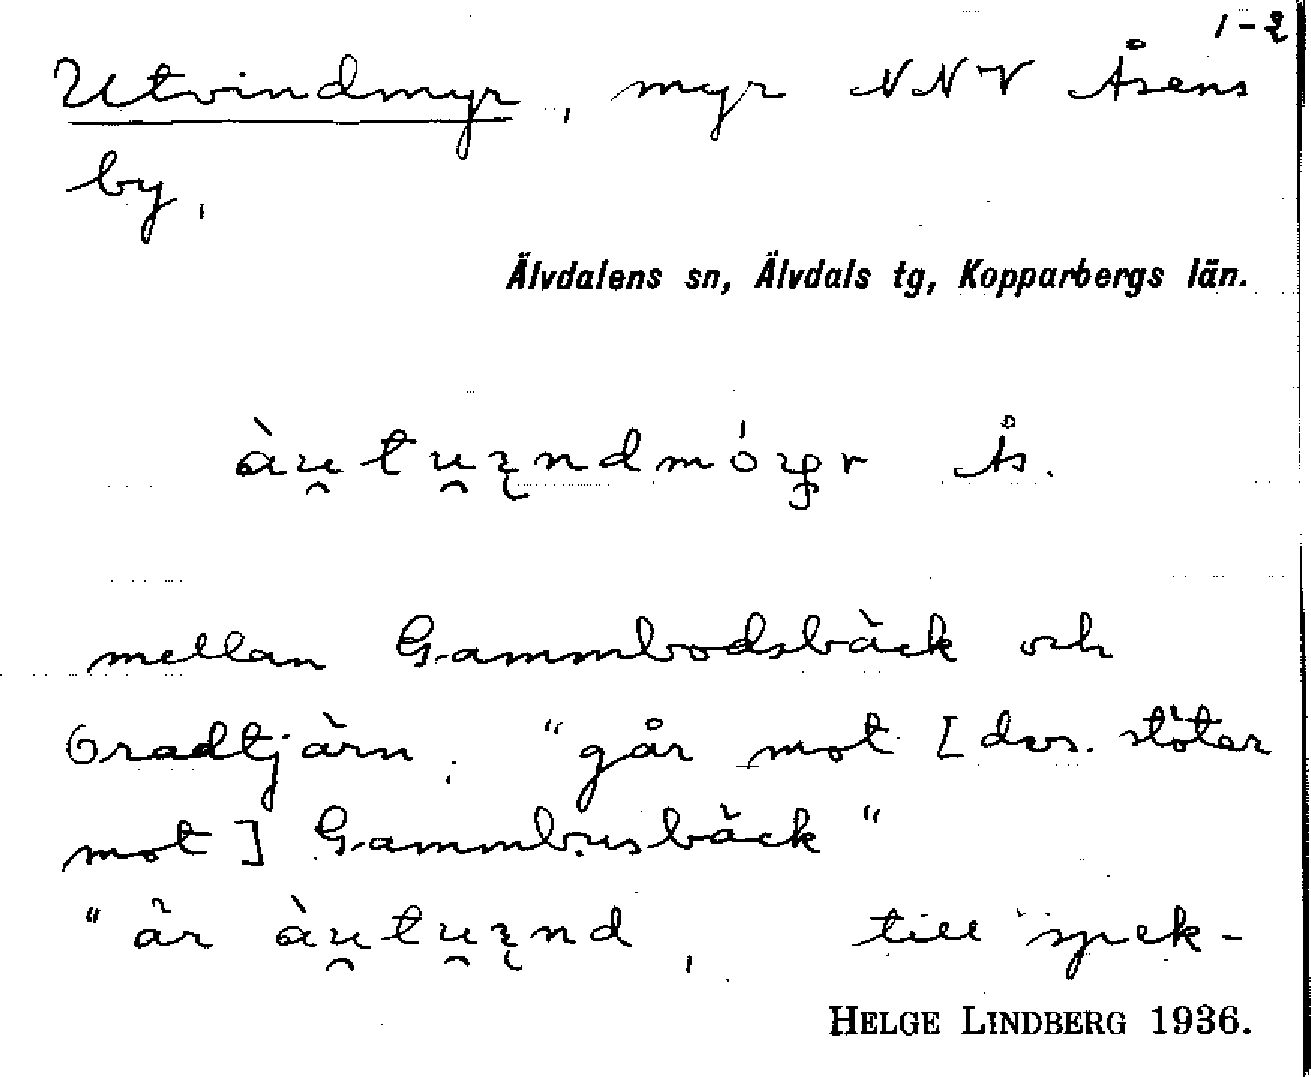 1-2
Utvindmyr, myr NNV Åsens
by,
Älvdalens sn, Älvdals tg, Kopparbergs län.
Ås.
mellan Gammbodsbäck och
Oradtjärn, "går mot [dvs. stöter
mot] Gammbusbäck"
"är till spek-
HELGE LINDBERG 1936.